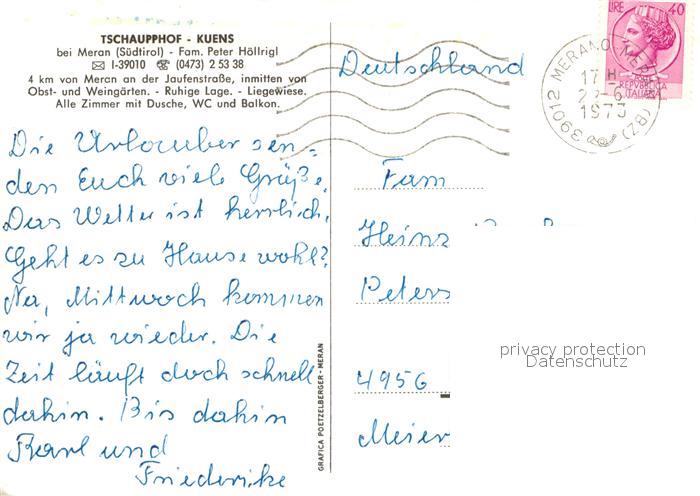 TSCHAUPPHOF - KUENS
bei Meran (Südtirol) - Fam. Peter Höllrigl
✉ I-39010 ☎ (0473) 2 53 38
4 km von Meran an der Jaufenstraße, inmitten von
Obst- und Weingärten. - Ruhige Lage. - Liegewiese.
Alle Zimmer mit Dusche, WC und Balkon.
Die Urlauber sen=
den Euch viele Grüße.
Das Wetter ist herrlich.
Geht es zu Hause wohl?
Na, Mittwoch kommen
wir ja wieder. Die
Zeit läuft doch schnell
dahin. Bis dahin
Karl und
Friederike
GRAFICA POETZELBERGER - MERAN
LIRE 40
REPVBBLICA
ITALIANA
39012 MERANO (BZ)
17 H
1973
Deutschland
Fam
Heinz
Peters
4956
Meier
privacy protection
Datenschutz